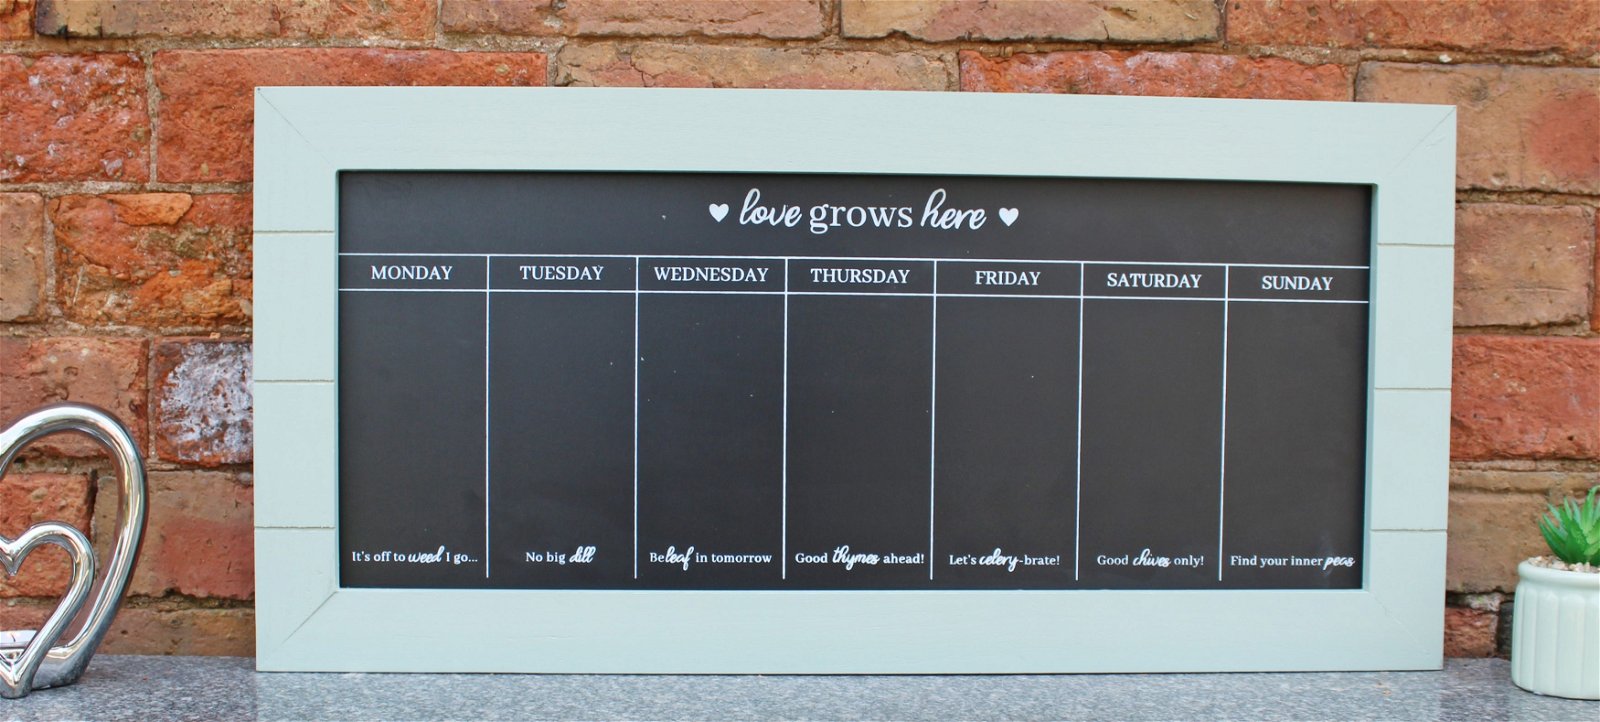 ♥ love grows here ♥
MONDAY TUESDAY WEDNESDAY THURSDAY FRIDAY SATURDAY SUNDAY
It's off to weed I go... No big dill Beleaf in tomorrow Good thymes ahead! Let's celery-brate! Good chives only! Find your inner peas